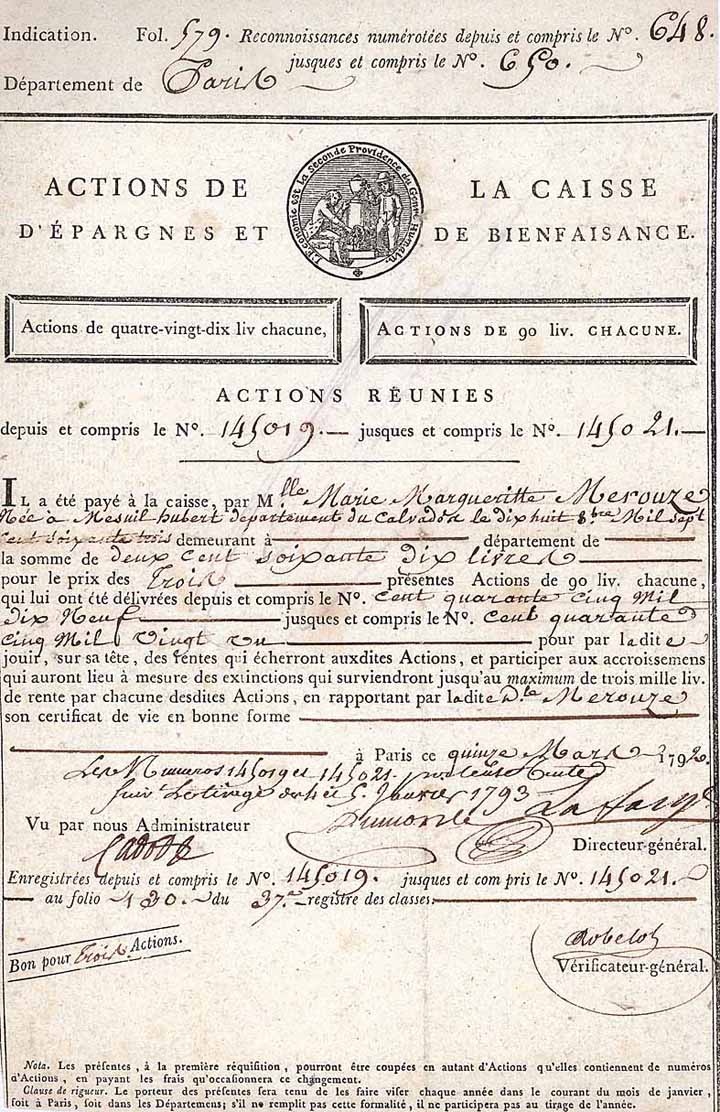 Indication. Fol. 579. Reconnoissances numérotées depuis et compris le N°. 648.
jusques et compris le N°. 650.
Département de Paris
L'Economie est la Seconde Providence du Genre Humain.
ACTIONS DE LA CAISSE
D'ÉPARGNES ET DE BIENFAISANCE.
Actions de quatre-vingt-dix liv chacune, ACTIONS DE 90 liv. CHACUNE.
ACTIONS RÉUNIES
depuis et compris le N°. 145019. jusques et compris le N°. 145021.
IL a été payé à la caisse, par Mlle Marie Margueritte Merouze
Née à Mesnil hubert département du Calvados le dix huit 8bre Mil Sept
Cent soixante trois demeurant à département de
la somme de deux Cent soixante dix livres
pour le prix des Trois présentes Actions de 90 liv. chacune,
qui lui ont été délivrées depuis et compris le N°. Cent quarante Cinq Mil
dix Neuf jusques et compris le N°. Cent quarante
Cinq Mil Vingt un pour par ladite
jouir, sur sa tête, des rentes qui écherront auxdites Actions, et participer aux accroissemens
qui auront lieu à mesure des extinctions qui surviendront jusqu'au maximum de trois mille liv.
de rente par chacune desdites Actions, en rapportant par ladite Dlle Merouze
son certificat de vie en bonne forme
à Paris ce quinze Mars 1792.
Les Numeros 145019 et 145021.
Suivt Le tirage des 4 et 5. Janvier 1793
Vu par nous Administrateur Lafarge
Directeur-général.
Enregistrées depuis et compris le N°. 145019. jusques et compris le N°. 145021.
au folio 130. du 37.me registre des classes.
Bon pour Trois Actions.
Robelot
Vérificateur-général.
Nota. Les présentes, à la première réquisition, pourront être coupées en autant d'Actions qu'elles contiennent de numéros
d'Actions, en payant les frais qu'occasionnera ce changement.
Clause de rigueur. Le porteur des présentes sera tenu de les faire viser chaque année dans le courant du mois de janvier,
soit à Paris, soit dans les Départemens; s'il ne remplit pas cette formalité, il ne participera pas au tirage de l'année.